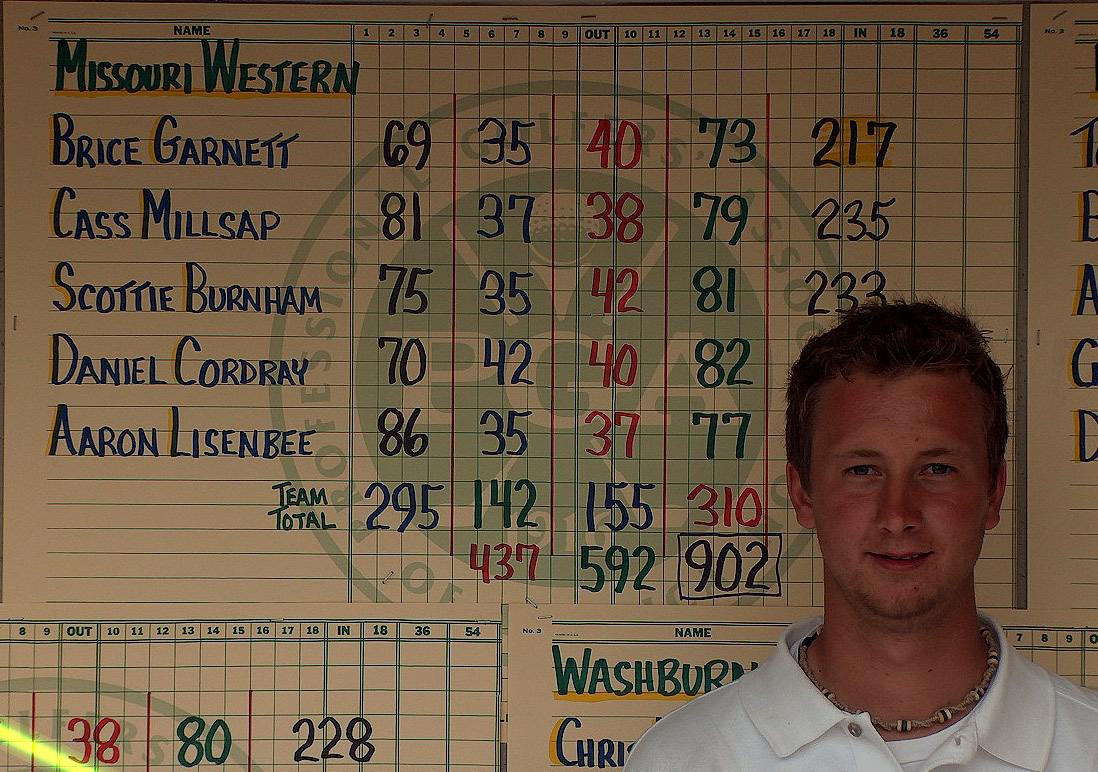 No. 3 NAME 1 2 3 4 5 6 7 8 9 OUT 10 11 12 13 14 15 16 17 18 IN 18 36 54 No. 3
MISSOURI WESTERN
BRICE GARNETT 69 35 40 73 217
CASS MILLSAP 81 37 38 79 235
SCOTTIE BURNHAM 75 35 42 81 233
DANIEL CORDRAY 70 42 40 82
AARON LISENBEE 86 35 37 77
TEAM TOTAL 295 142 155 310
437 592 902
PROFESSIONAL GOLFERS' ASSO
PGA
8 9 OUT 10 11 12 13 14 15 16 17 18 IN 18 36 54 No. 3 NAME 7 8 9
WASHBURN
38 80 228 CHRIS